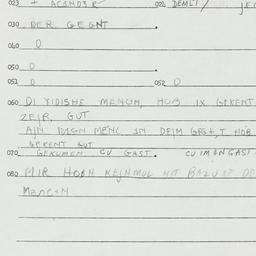 023 + 024 DEMLT/
030 DER GEGNT
040 0
050 0
051 0 052 0
060 DI YIDISHE MENCN, HOB IX GEKENT
ZEJR, GUT
AJN MENC IN DEJM HOB
GEKENT GUT
070 GEKUMEN CU GAST. CU IM IN GAST
080 MIR HOBN KEJNMOL NIT BAZUXT
MENCN